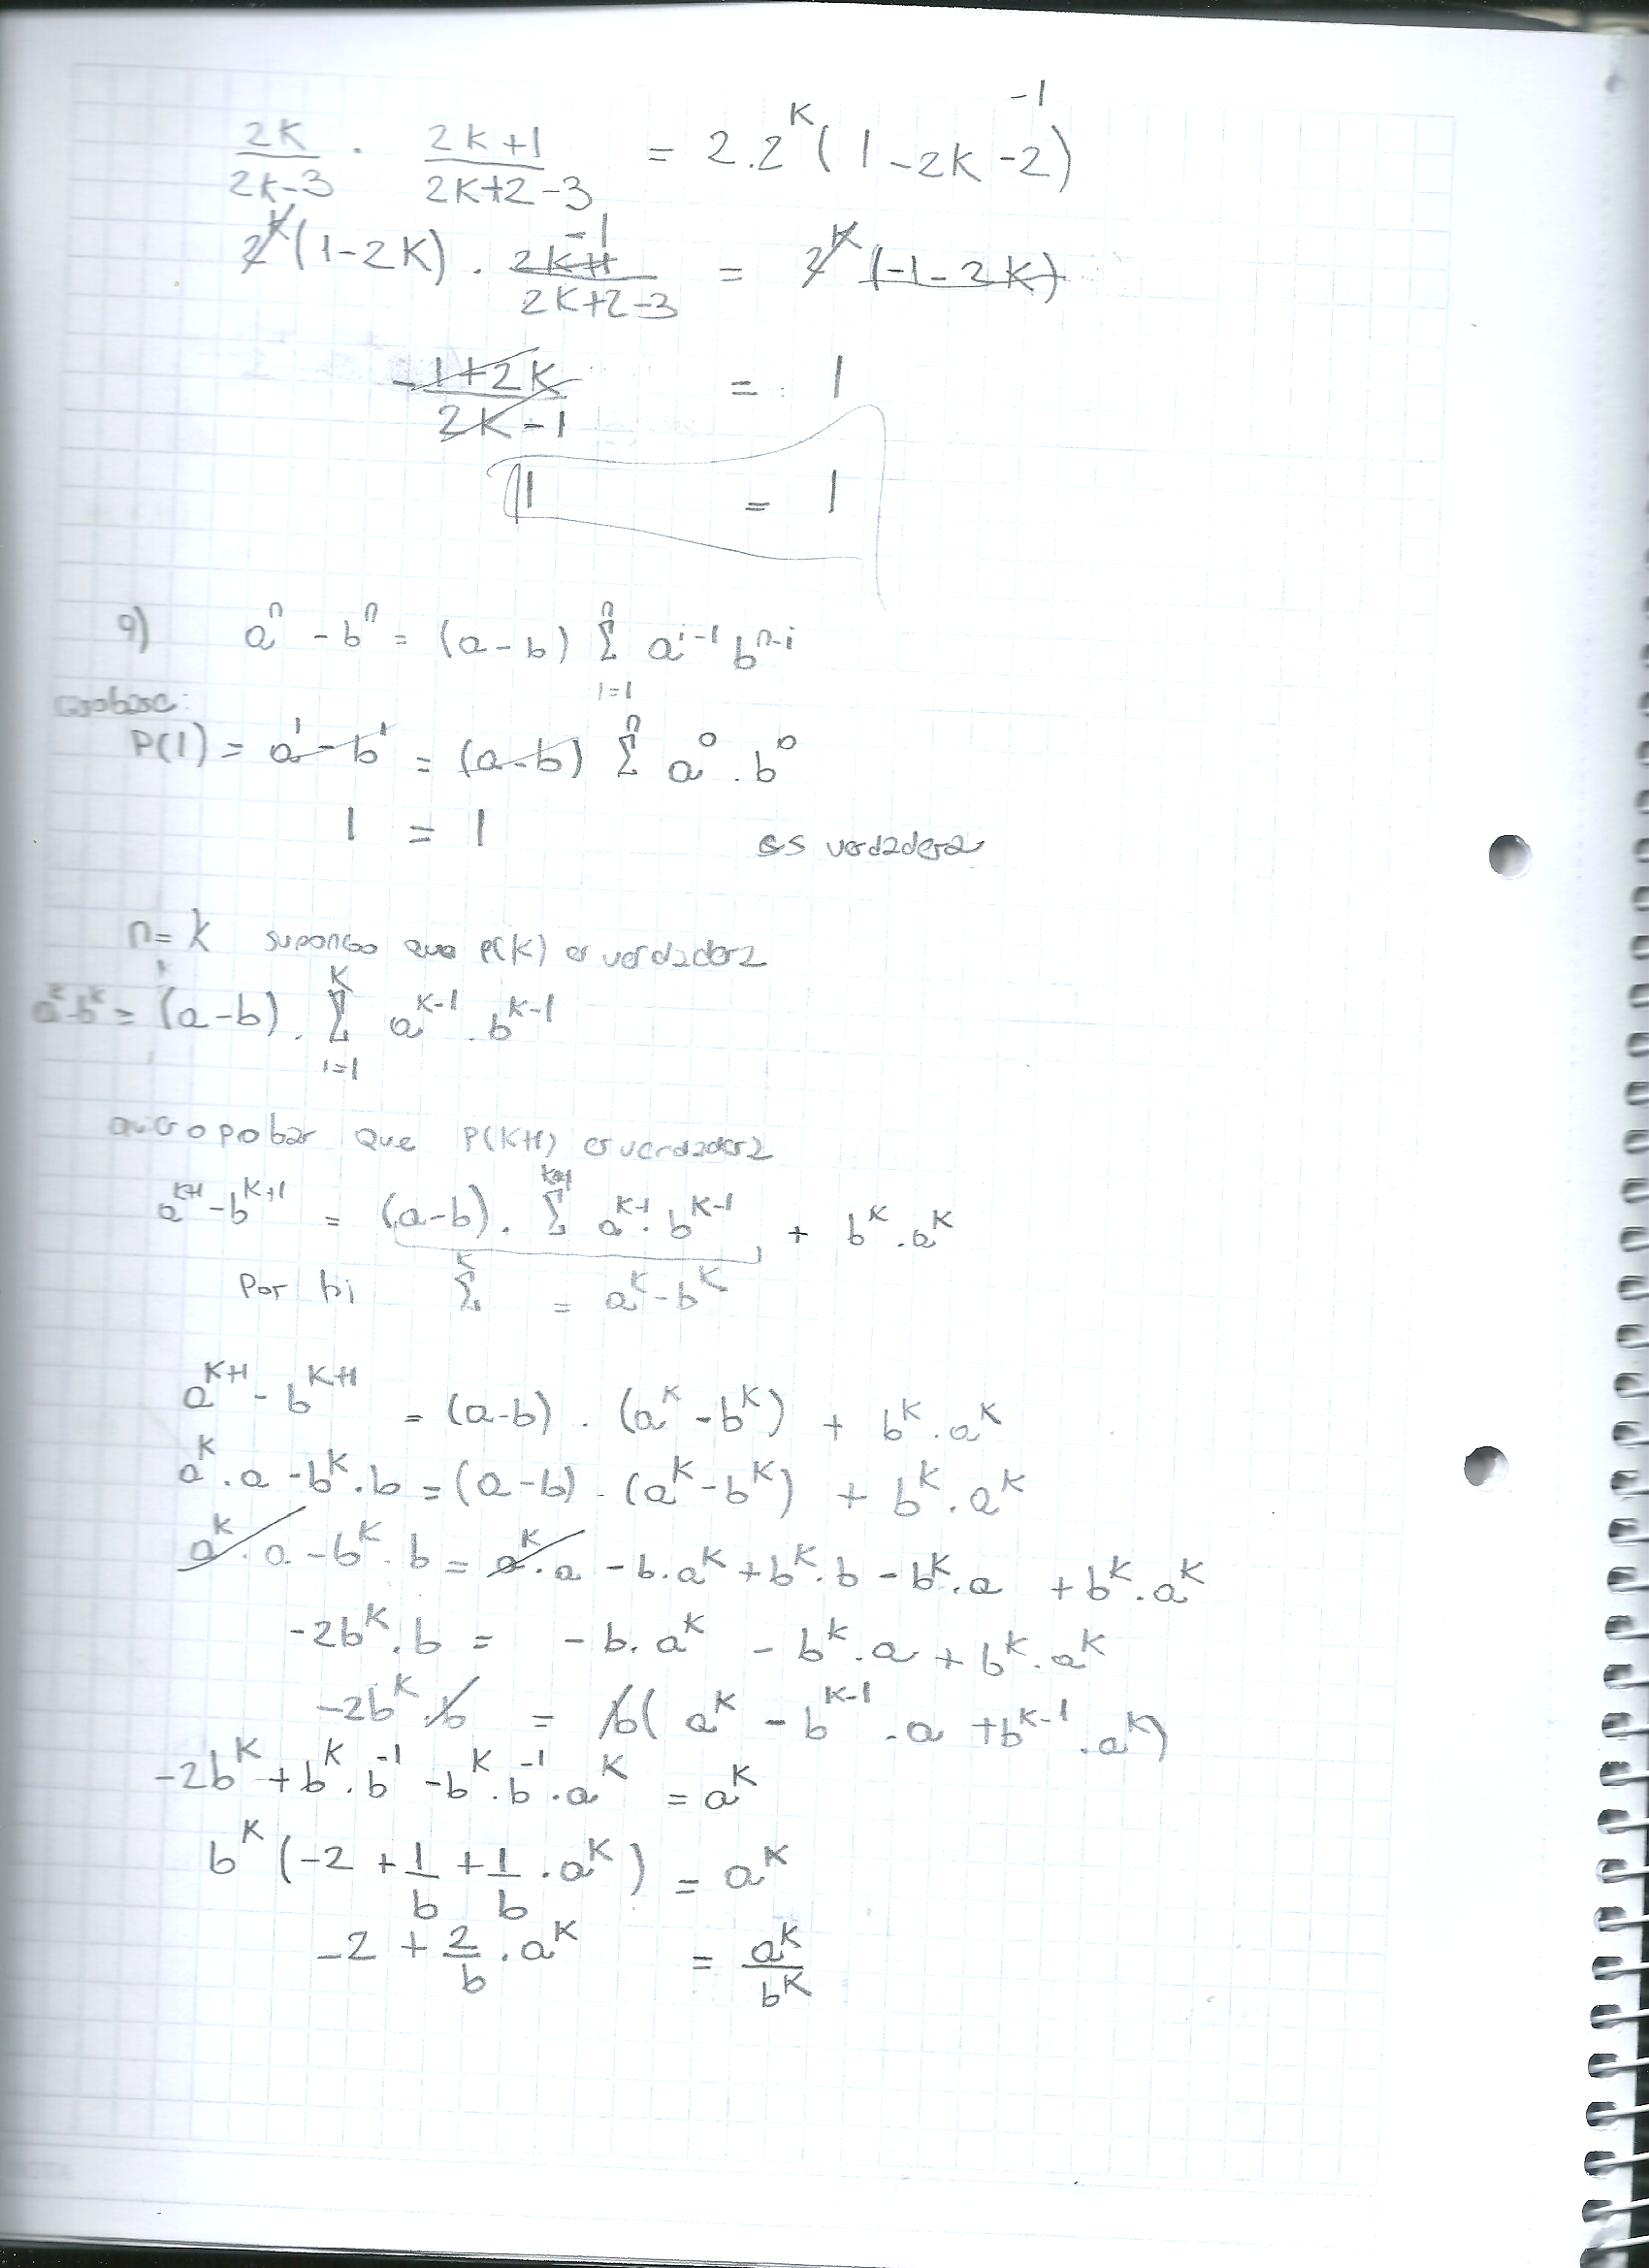 2K/2K-3 . 2K+1/2K+2-3 = 2.2^K (1-2K-2) -1
2^K (1-2K) . 2K+1/2K+2-3 -1 = 2^K (-1-2K)
-1+2K/2K-1 = 1
1 = 1
9) a^n - b^n = (a-b) Σ_{i=1}^{n} a^{i-1} b^{n-i}
caso base:
P(1) = a^1 - b^1 = (a-b) Σ^n a^0 . b^0
1 = 1 es verdadera
n=k supongo que P(K) es verdadera
a^k-b^k = (a-b) . Σ_{i=1}^{K} a^{K-1} . b^{K-1}
probar que P(K+1) es verdadera
a^{K+1} - b^{K+1} = (a-b) . Σ^{K+1} a^{K-1} . b^{K-1} + b^K . a^K
Por hi Σ^K = a^K - b^K
a^{K+1} - b^{K+1} = (a-b) . (a^K - b^K) + b^K . a^K
a^K . a - b^K . b = (a-b) . (a^K - b^K) + b^K . a^K
a^K . a - b^K . b = a^K . a - b . a^K + b^K . b - b^K . a + b^K . a^K
-2b^K . b = - b . a^K - b^K . a + b^K . a^K
-2b^K . b = b( a^K - b^{K-1} . a + b^{K-1} . a^K)
-2b^K + b^K . b^{-1} - b^K . b^{-1} . a^K = a^K
b^K (-2 + 1/b + 1/b . a^K) = a^K
-2 + 2/b . a^K = a^K/b^K